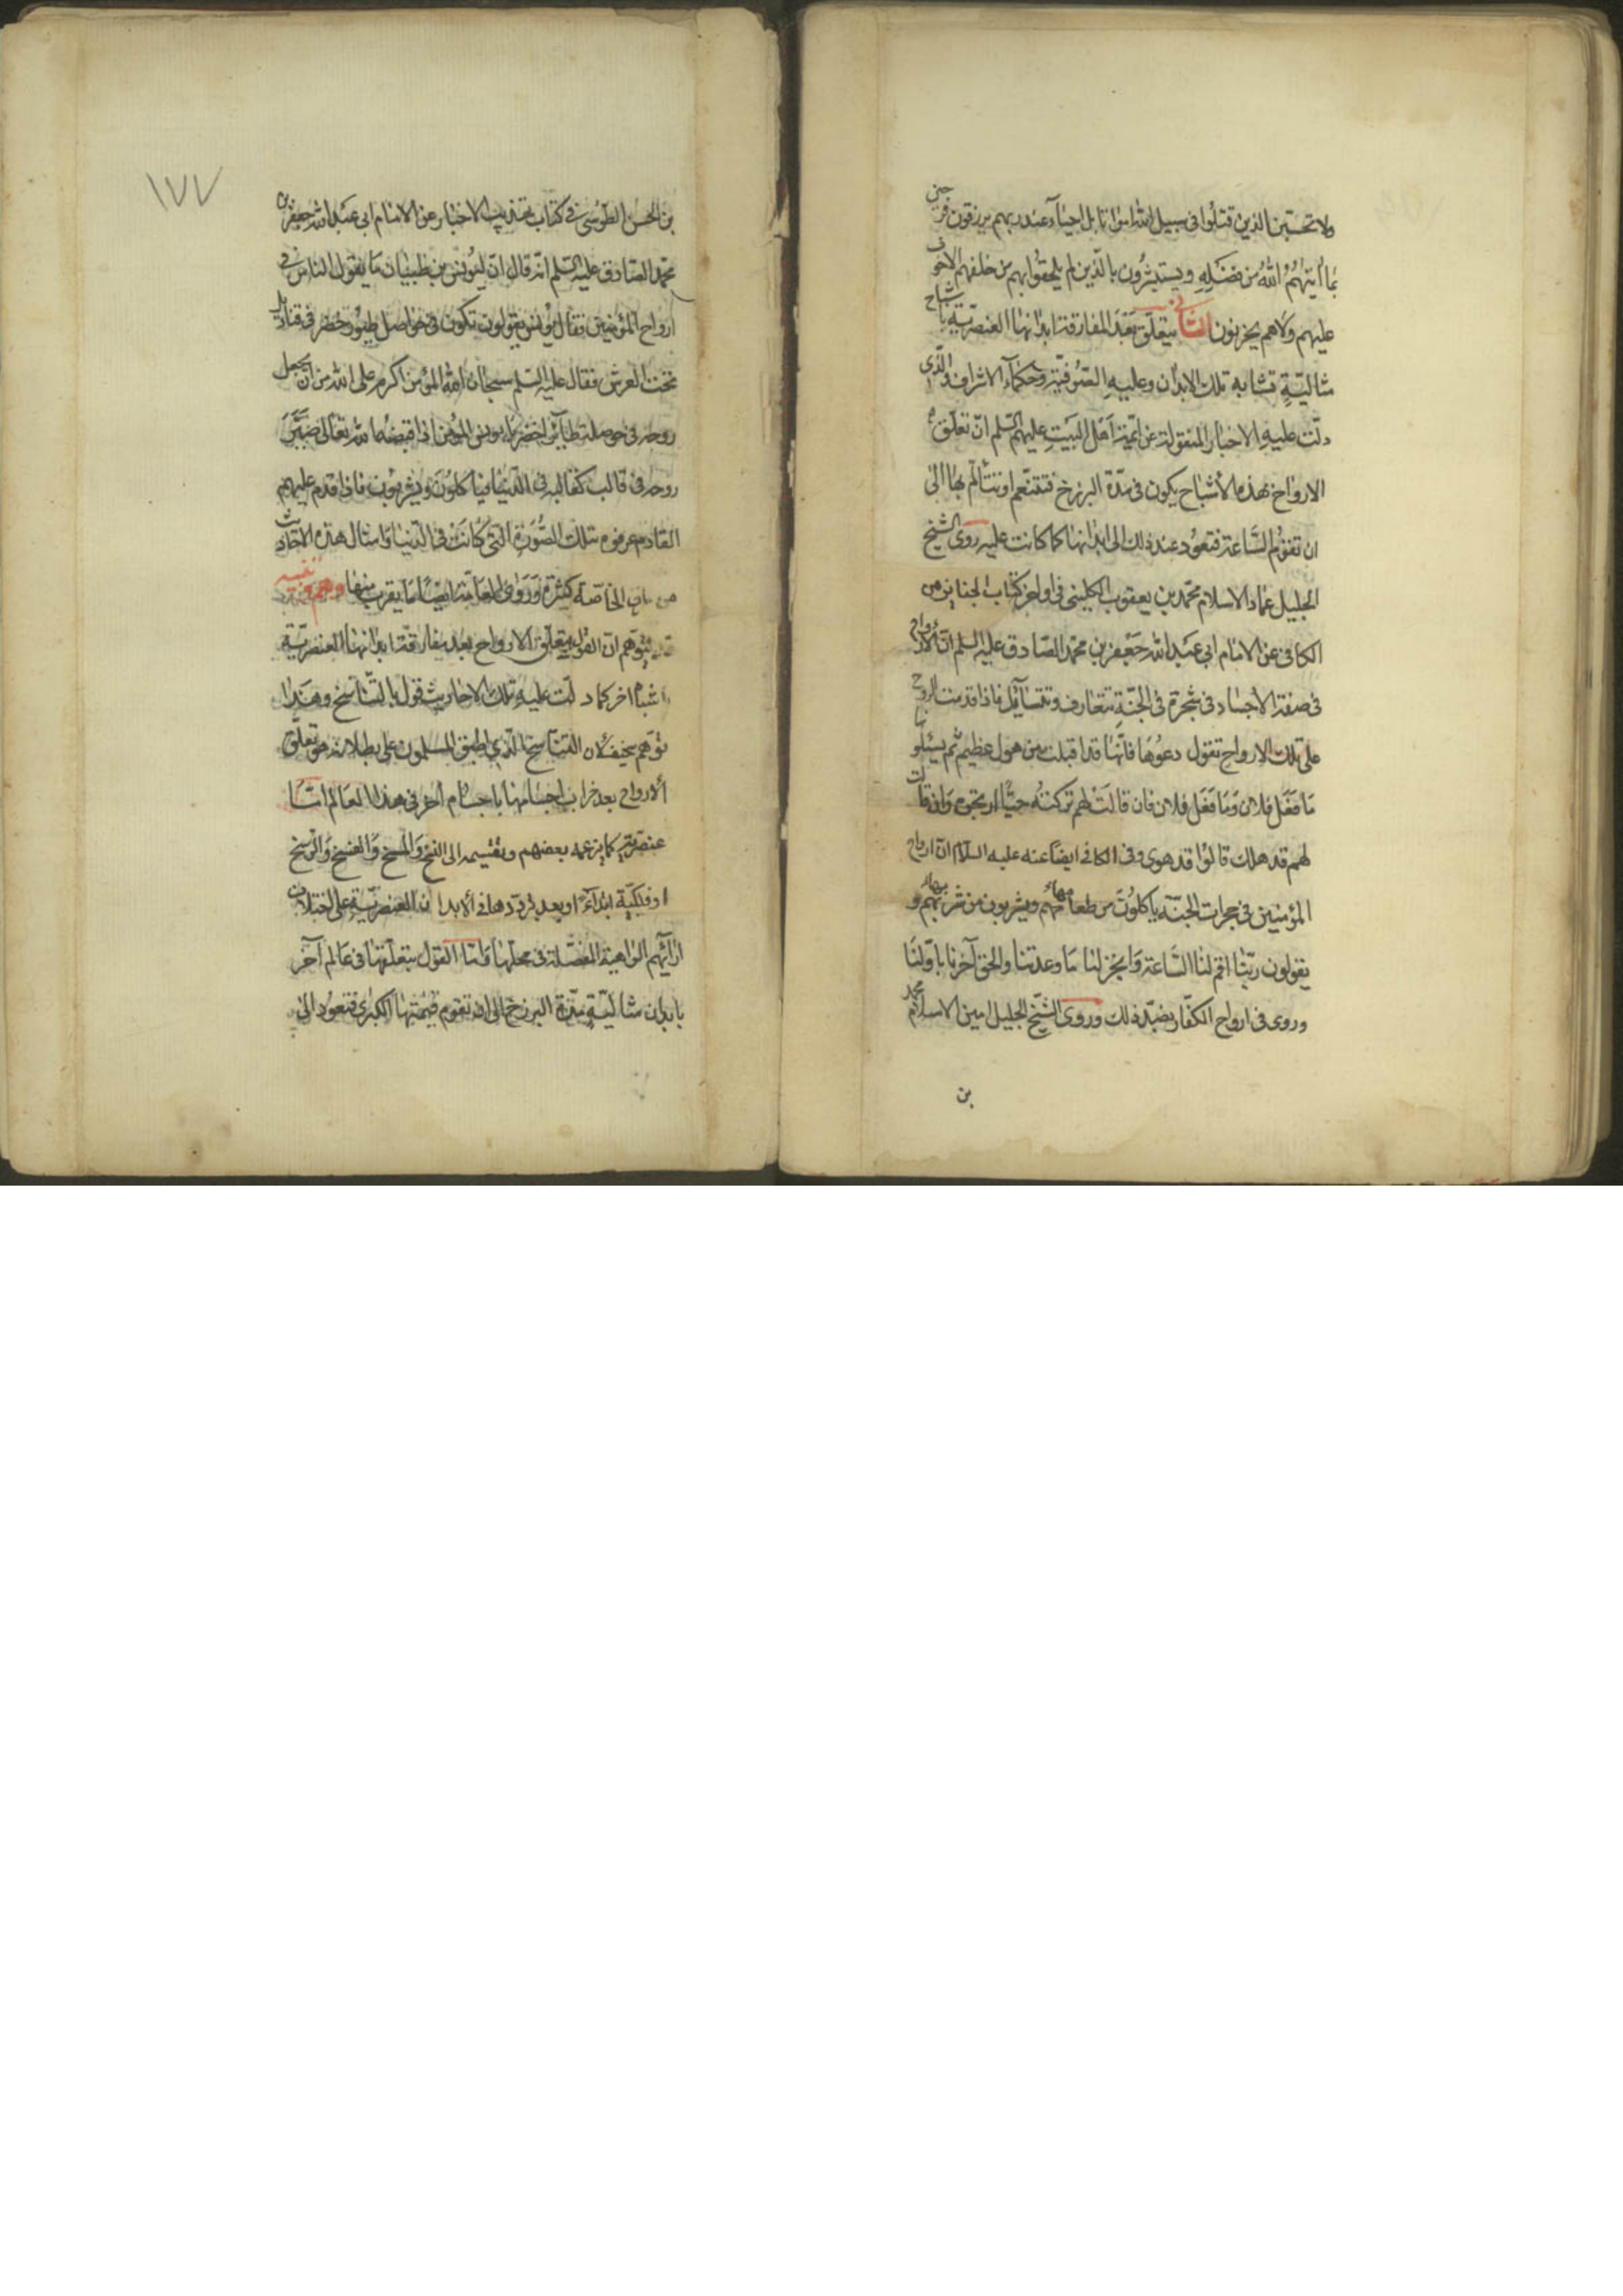 ولا تحسبن الذين قتلوا في سبيل الله امواتا بل احياء عند ربهم يرزقون فرحين
بما آتيهم الله من فضله ويستبشرون بالذين لم يلحقوا بهم من خلفهم الا خوف
عليهم ولا هم يحزنون الثاني يتعلق بعد المفارقة ابدانها العنصرية باشباح
مثالية تشابه تلك الابدان وعليه الصوفية وحكماء الاشراف والذي
دلت عليه الاخبار المنقولة عن ائمة اهل البيت عليهم السلم ان تعلق
الارواح بهذه الأشباح يكون في مدة البرزخ فتتنعم او تتألم بها الى
ان تقوم الساعة فتعود عند ذلك الى ابدانها كما كانت عليه روى الشيخ
الجليل عماد الاسلام محمد بن يعقوب الكليني في اواخر كتاب الجنايز من
الكافي عن الامام ابي عبد الله جعفر بن محمد الصادق عليه السلم ان الأرواح
في صفة الأجساد في شجرة في الجنة تتعارف وتتسآئل فاذا قدمت الروح
على تلك الارواح تقول دعوها فانها قد اقبلت من هول عظيم ثم يسئلونها
ما فعل فلان وما فعل فلان فان قالت لهم تركته حيا ارتجوه وان قالت
لهم قد هلك قالوا قد هوى وفي الكافي ايضا عنه عليه السلام ان ارواح
المؤمنين في حجرات الجنة ياكلون من طعامها ويشربون من شرابها و
يقولون ربنا اقم لنا الساعة وانجز لنا ما وعدتنا والحق آخرنا باولنا
وروى في ارواح الكفار بضد ذلك وروى الشيخ الجليل امين الاسلام محمد
بن
١٧٧
بن الحسن الطوسى في كتاب تهذيب الاخبار عن الامام ابي عبد الله جعفر بن
محمد الصادق عليه السلم انه قال ان ليونس بن ظبيان ما يقول الناس في
ارواح المؤمنين فقال يونس يقولون تكون في حواصل طيور خضر في قناديل
تحت العرش فقال عليه السلم سبحان الله المؤمن اكرم على الله من ان يجعل
روحه في حوصلة طائر اخضر يا يونس المؤمن اذا قبضه الله تعالى صير
روحه في قالب كقالبه في الدنيا فياكلون ويشربون فاذا قدم عليهم
القادم عرفوه بتلك الصورة التي كانت في الدنيا وامثال هذه الاحاديث
من الخاصة كثيرة وروى العامة ايضا ما يقرب منها وهم وتنبيه
قد يتوهم ان القول بتعلق الارواح بعد مفارقة ابدانها العنصرية
اشباه اخر كما دلت عليه تلك الاحاديث قول بالتناسخ وهذا
توهم سخيف لان التناسخ الذي اطبق المسلمون على بطلانه هو تعلق
ألارواح بعد خراب اجسامها باجسام اخر في هذا العالم اما
عنصرية كما يزعمه بعضهم ويقسمه الى النسخ والمسخ والفسخ والرسخ
او فلكية ابتداءً او بعد ترددها في ألابدان العنصرية على اختلاف
ارآئهم الواهية المفصلة في محلها واما القول بتعلقها في عالم آخر
بابدان مثالية مدة البرزخ الى ان تقوم قيمتها الكبرى فتعود الى